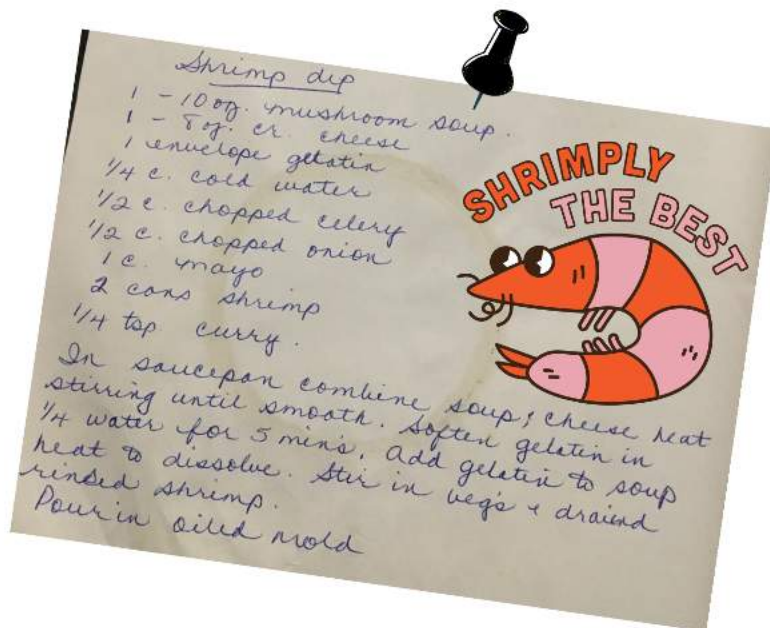 Shrimp dip
1 - 10 oz. mushroom soup.
1 - 8 oz. cr. cheese
1 envelope gelatin
1/4 c. cold water
1/2 c. chopped celery
1/2 c. chopped onion
1 c. mayo
2 cans shrimp
1/4 tsp curry.
SHRIMPLY
THE BEST
In saucepan combine soup & cheese heat
stirring until smooth. Soften gelatin in
1/4 water for 5 mins. Add gelatin to soup
heat to dissolve. Stir in veg's & draiend
rinsed shrimp.
Pour in oiled mold